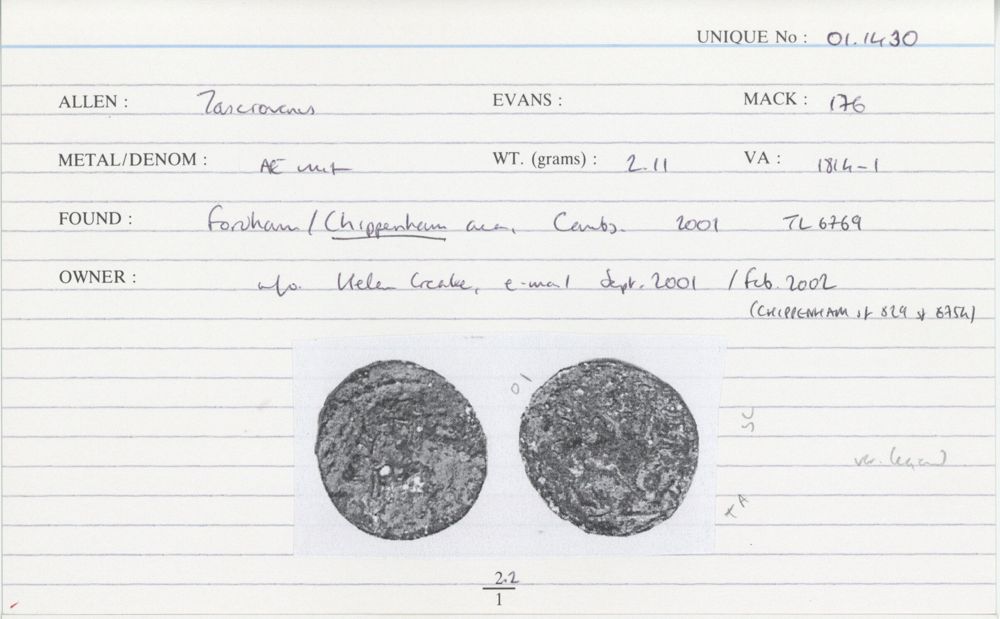 UNIQUE No : 01.1430
ALLEN : Tasciovanus EVANS : MACK : 176
METAL/DENOM : AE unit WT. (grams) : 2.11 VA : 1814-1
FOUND : Fordham / Chippenham area, Cambs. 2001 TL 6769
OWNER : info. Helen Geake, e-mail Sept. 2001 / Feb. 2002
(CHIPPENHAM is 829 & 6754)
01
SC
KA
var. legend
2.2
1